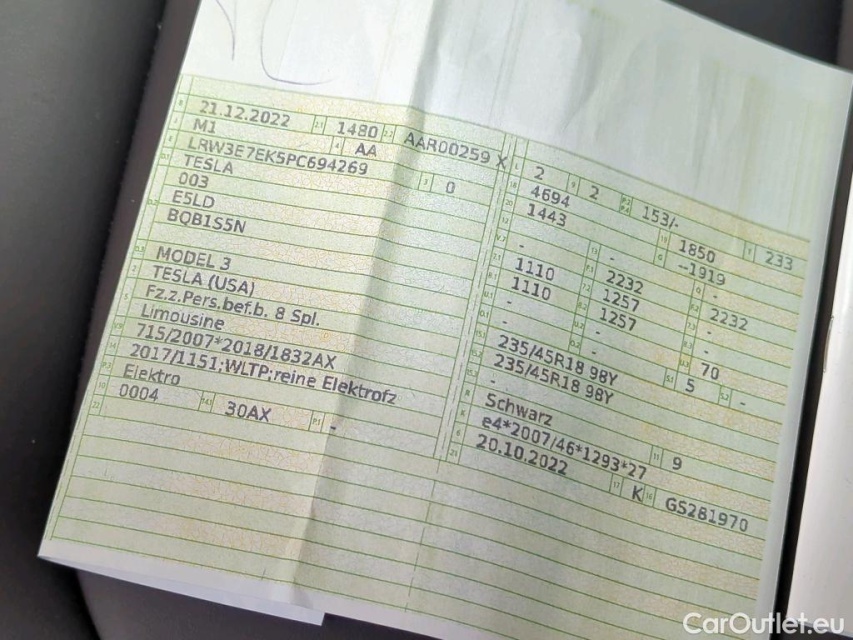 21.12.2022 1480 AAR00259 X
M1 AA
LRW3E7EK5PC694269
TESLA 0
003
E5LD
BQB1S5N
MODEL 3
TESLA (USA)
Fz.z.Pers.bef.b. 8 Spl.
Limousine
715/2007*2018/1832AX
2017/1151;WLTP;reine Elektrofz
Elektro
0004 30AX -
2 2 153/-
4694 1850 233
1443 --1919
- - -
1110 2232 2232
1110 1257
- 1257 -
- - 70
235/45R18 98Y 5 -
235/45R18 98Y
-
Schwarz 9
e4*2007/46*1293*27
20.10.2022 K GS281970
CarOutlet.eu